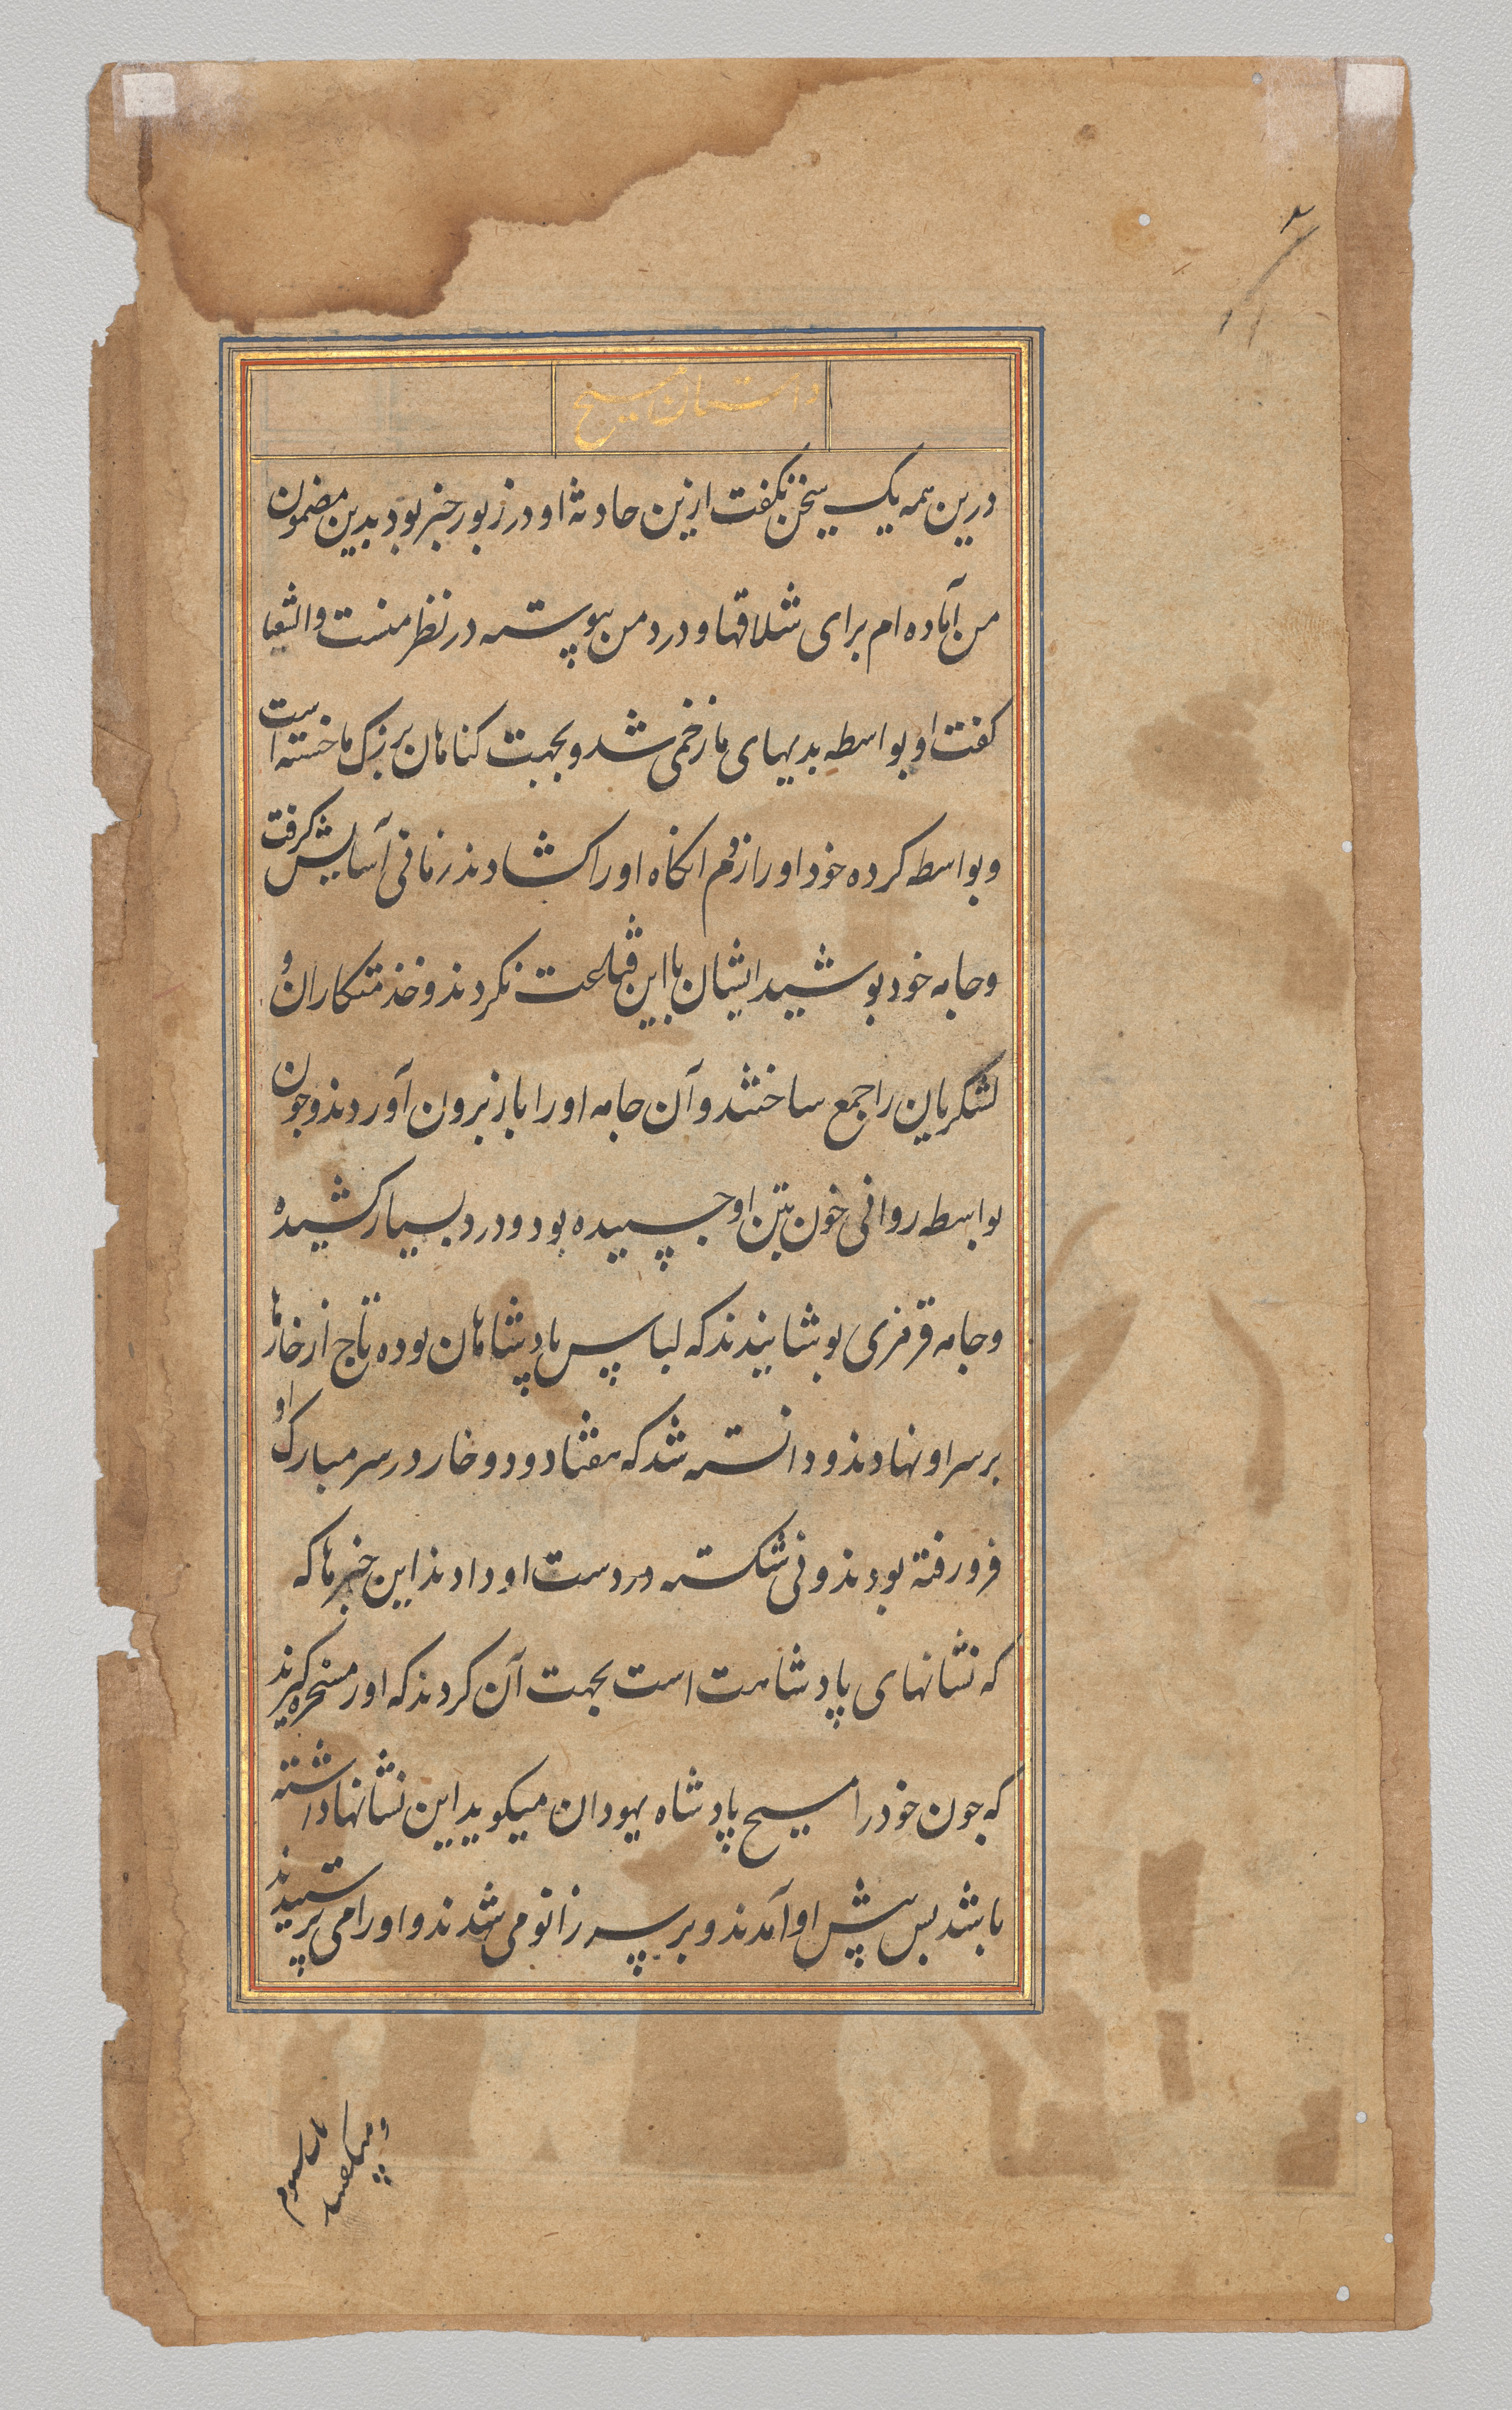 داستان مسیح
درین همه یک سخن نگفت ازین حادثهٔ او در زبور خبر بود بدین مضمون
من آماده ام برای شلاقها و درد من پیوسته در نظر منست و اشعیا
کفت او بواسطه بدیهای ما زخمی شد و بجهت کناهان بزرک ما خسته است
و بواسطه کرده خود او را زدم انکاه او را کشادند زمانی آسایش کرفت
و جامه خود پوشید ایشان با این قناعت نکردند و خدمتکاران و
لشکریان را جمع ساختند و آن جامه او را باز بیرون آوردند و چون
بواسطه روانی خون بتن او چسپیده بود و درد بسیار کشیده
و جامه قرمزی پوشانیدند که لباس پادشاهان بوده تاج از خارها
بر سر او نهادند و دانسته شد که هفتاد و دو خار در سر مبارک او
فرو رفته بودند و نی شکسته در دست او دادند این چیزها که
که نشانهای پادشاهت است بجهت آن کردند که او را مسخره کیرند
که چون خود را مسیح پادشاه یهودان میکوید این نشانها داشته
باشد پس پیش او آمدند و بر سر زانو می شدند و او را می پرستیدند